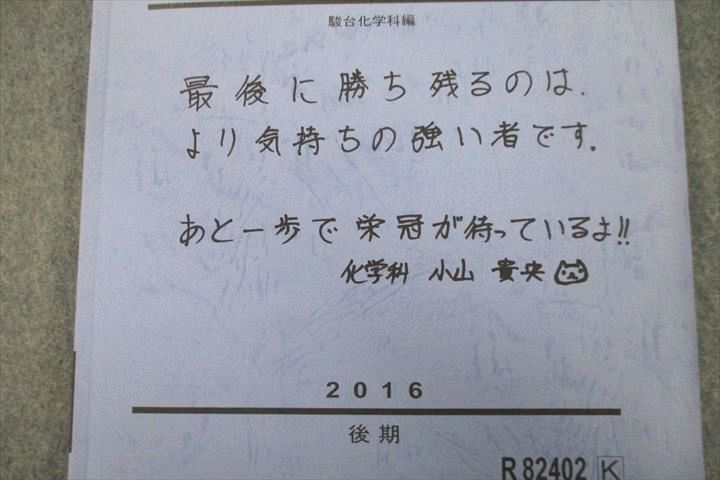 駿台化学科編
最後に勝ち残るのは.
より気持ちの強い者です.
あと一歩で栄冠が待っているよ!!
化学科 小山 貴央
2016
後期
R82402 K